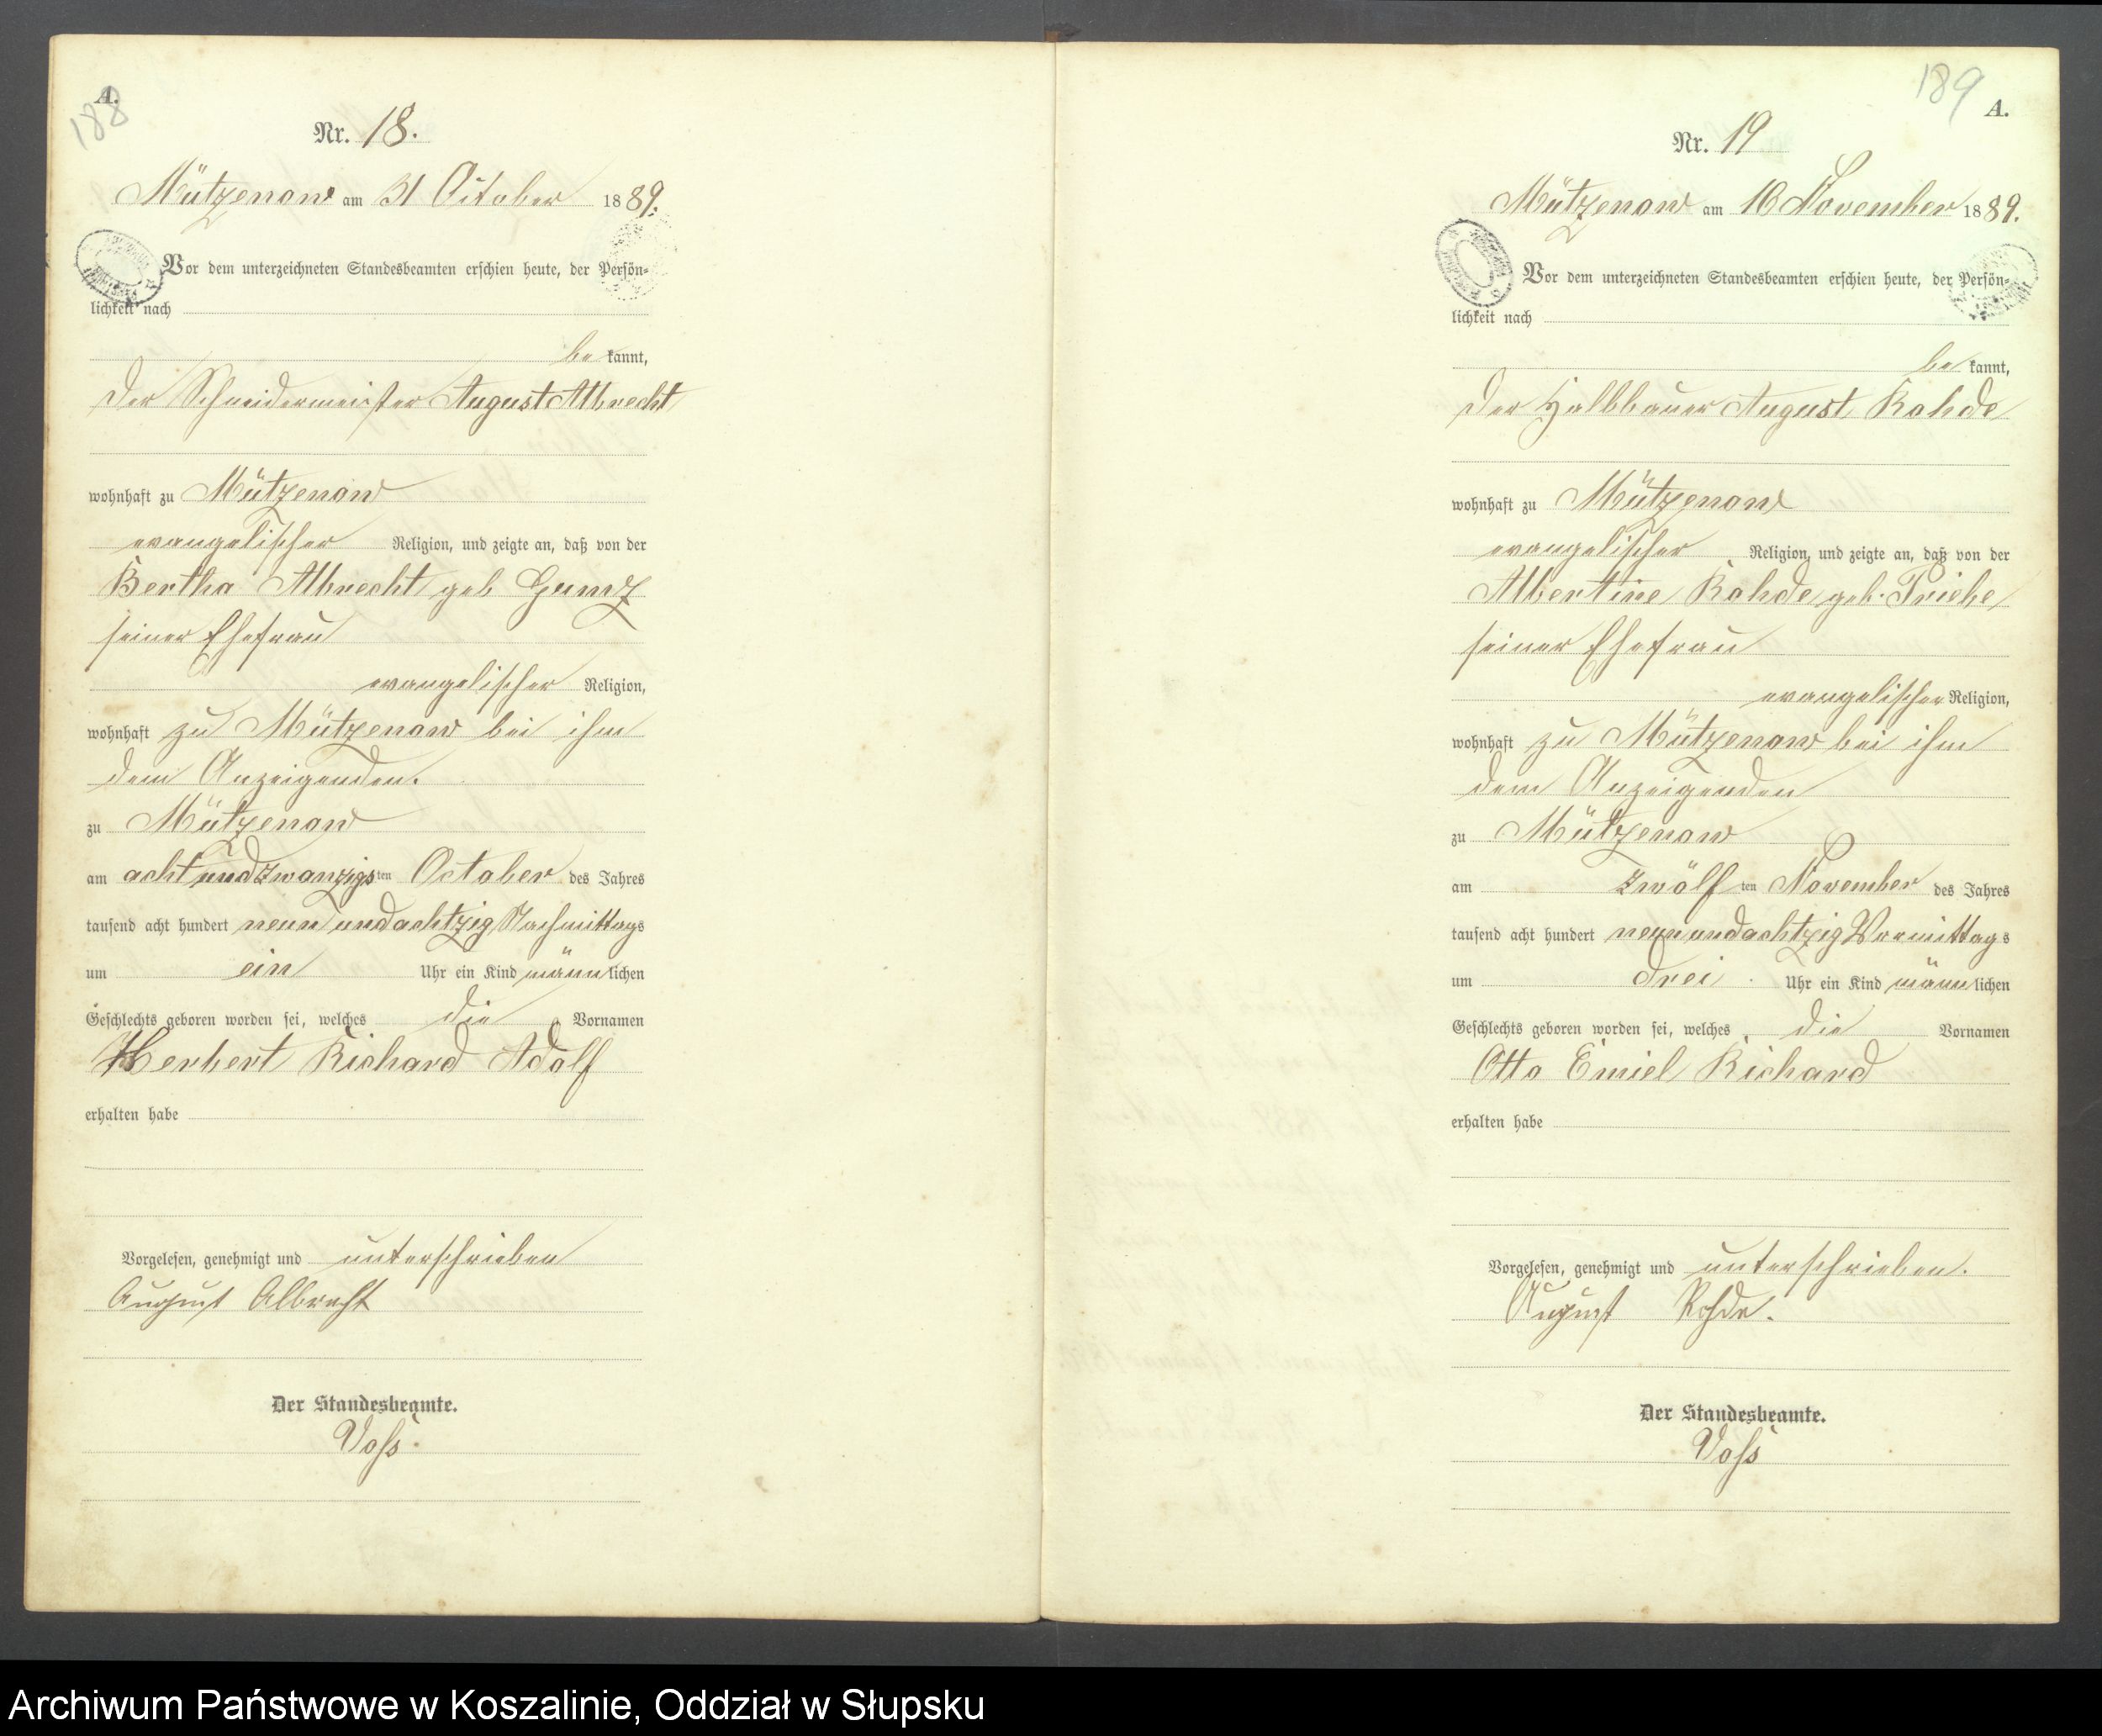 188
A.
Nr. 18.
Mützenow am 31 October 1889.
Vor dem unterzeichneten Standesbeamten erschien heute, der Persön-
lichkeit nach
be kannt,
der Schneidermeister August Albrecht
wohnhaft zu Mützenow
evangelischer Religion, und zeigte an, daß von der
Bertha Albrecht geb Gumz
seiner Ehefrau
evangelischer Religion,
wohnhaft zu Mützenow bei ihm
dem Anzeigenden.
zu Mützenow
am acht und zwanzigsten October des Jahres
tausend acht hundert neun und achtzig Nachmittags
um ein Uhr ein Kind männlichen
Geschlechts geboren worden sei, welches die Vornamen
Herbert Richard Adolf
erhalten habe
Vorgelesen, genehmigt und unterschrieben
August Albrecht
Der Standesbeamte.
Voss.
189
A.
Nr. 19
Mützenow am November 1889.
Vor dem unterzeichneten Standesbeamten erschien heute, der Persön-
lichkeit nach
be kannt,
der Halbbauer August Rohde
wohnhaft zu Mützenow
evangelischer Religion, und zeigte an, daß von der
Albertine Rohde geb. Priebe
seiner Ehefrau
evangelischer Religion,
wohnhaft zu Mützenow bei ihm
dem Anzeigenden
zu Mützenow
am zwölf ten November des Jahres
tausend acht hundert neun und achtzig Vormittags
um drei Uhr ein Kind männlichen
Geschlechts geboren worden sei, welches die Vornamen
Otto Emiel Richard
erhalten habe
Vorgelesen, genehmigt und unterschrieben.
August Rohde.
Der Standesbeamte.
Voss
Archiwum Państwowe w Koszalinie, Oddział w Słupsku